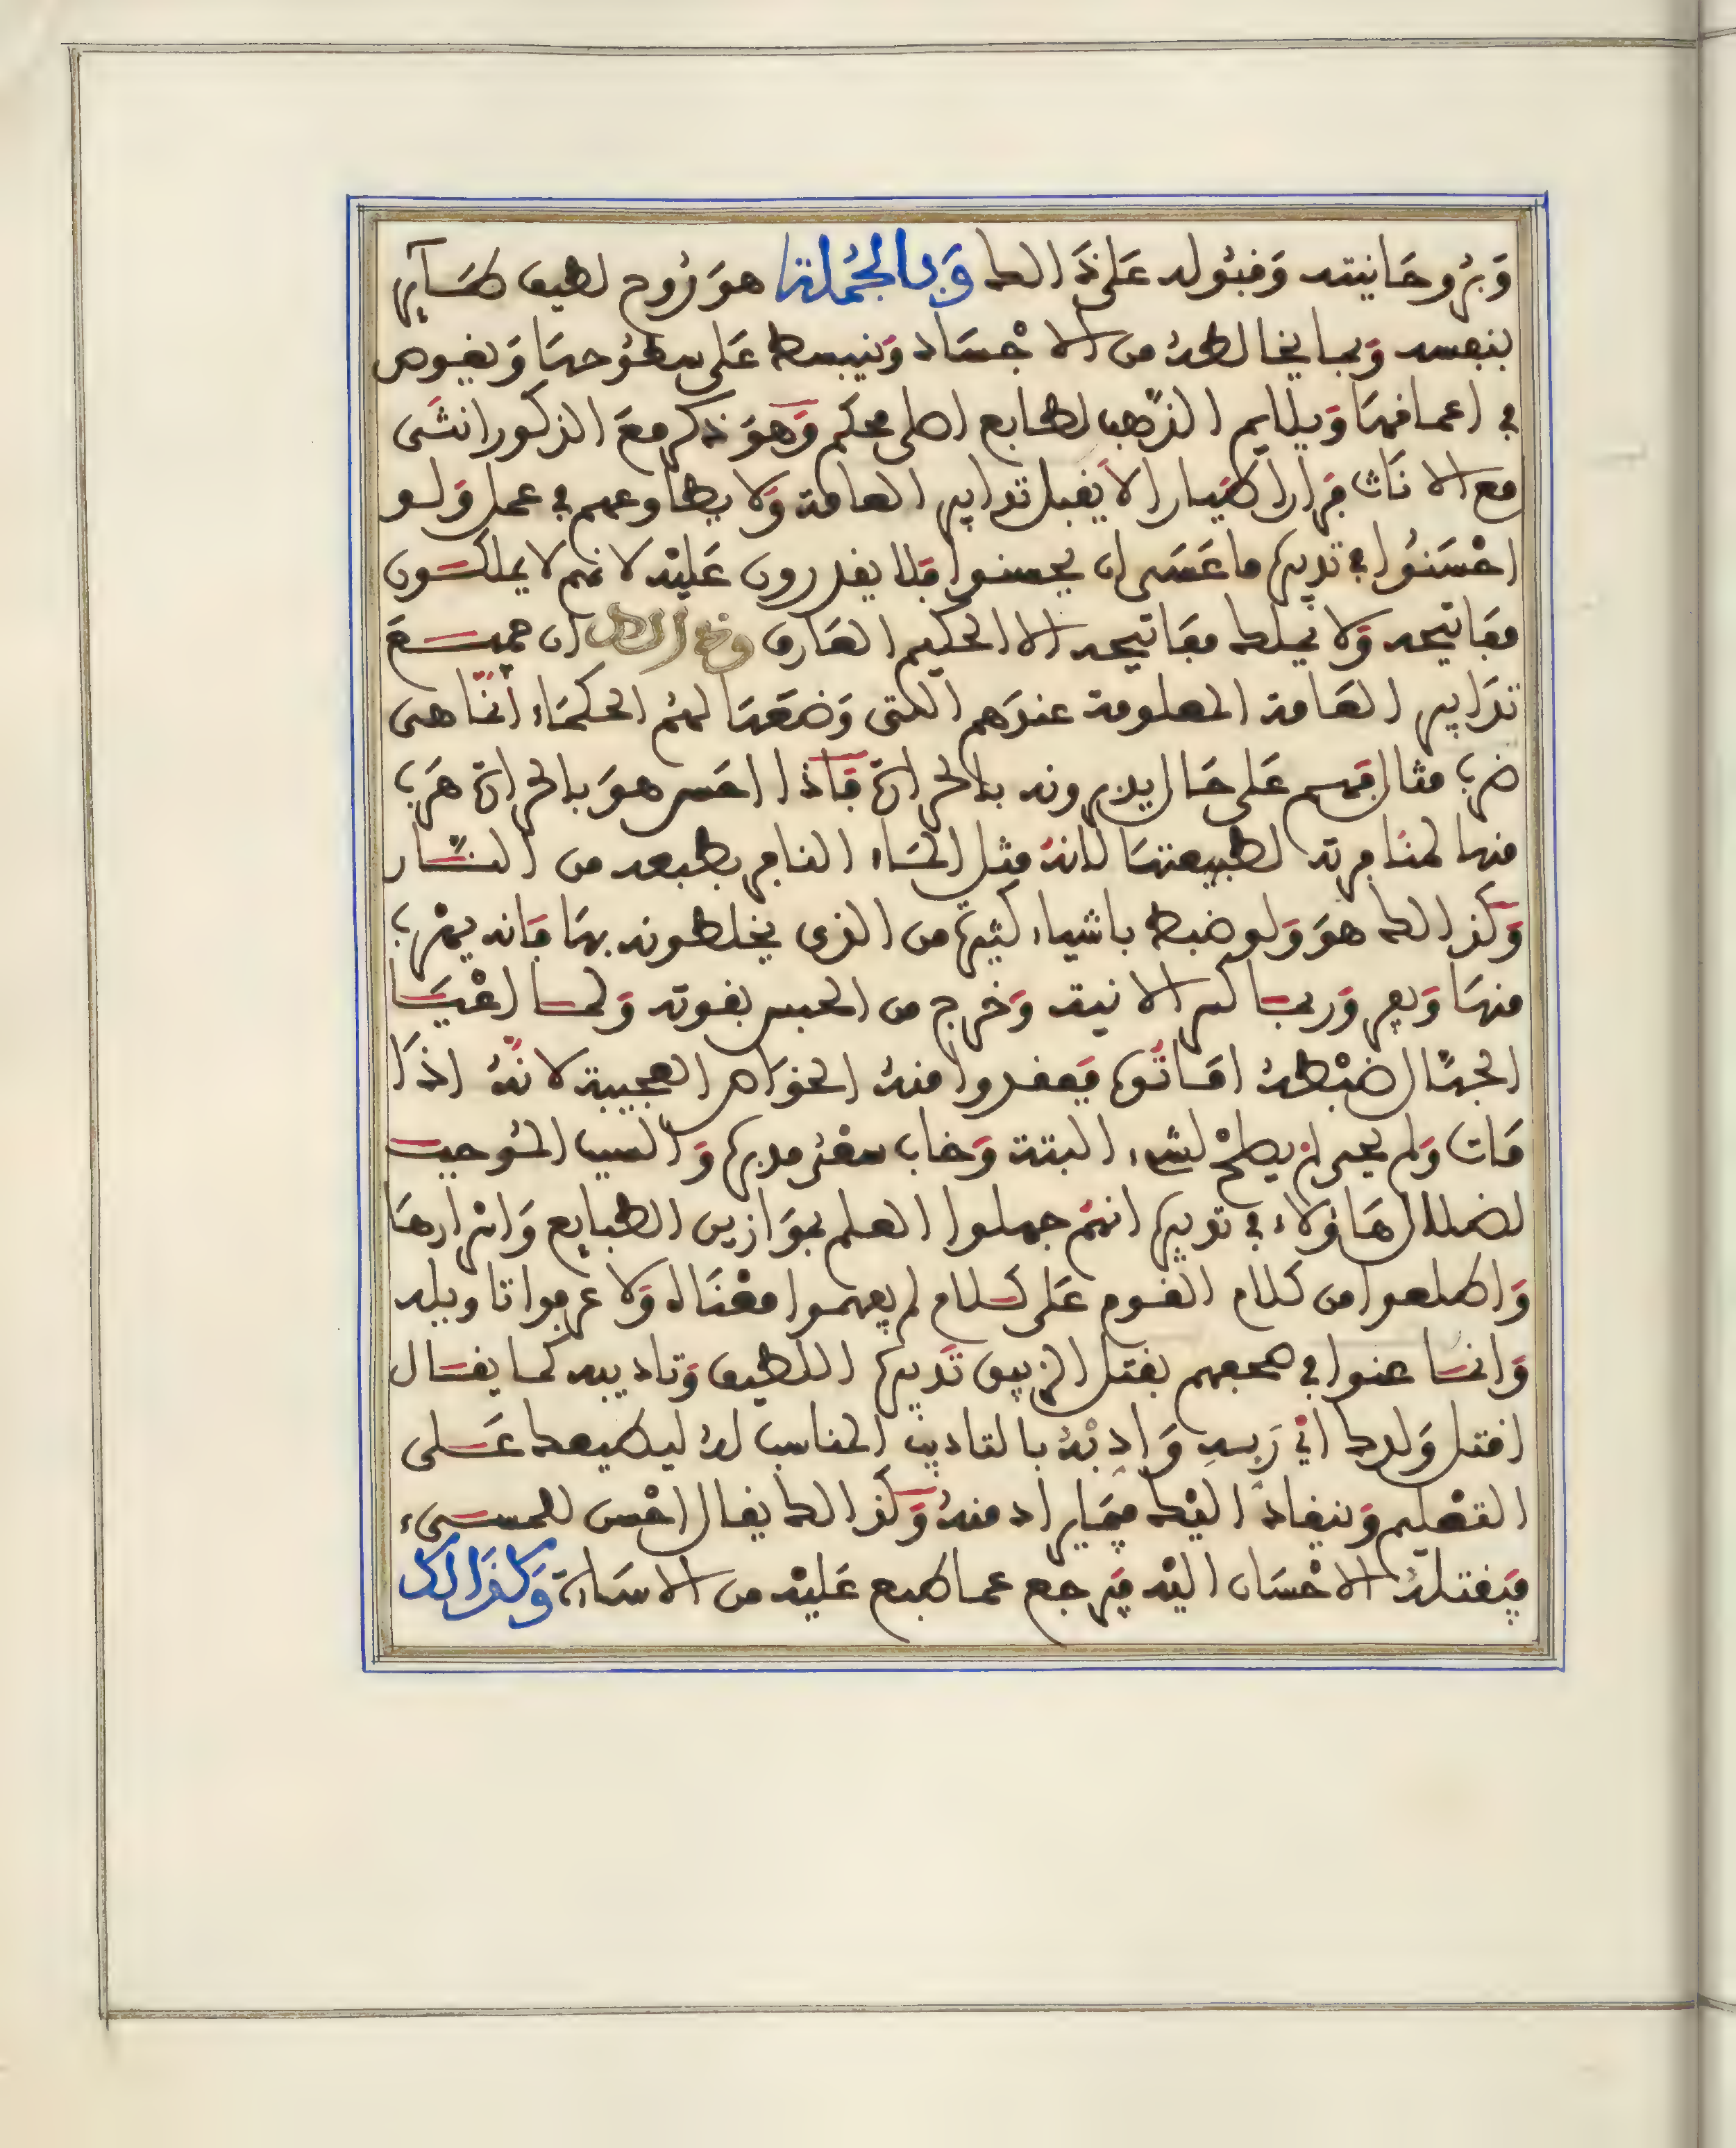 وَبرُوحَانيته وَقبُوله عَلى ذَالك وَبالجُملة هوَ رُوح لطيف طَآير
بنفسه وَبما يخالطهُ من الاجْسَاد وَينبسط عَلى سطوُحهَا وَيغوص
في اعماقهَا وَيلايم الذّهب لطابع اصلي محكم وَهوَ ذكر معَ الذكور انثَى
مع الانَاث فرّار طيّار لا يَقبل تدابير العامة وَلا يطاوعهم في عمل وَلو
احْسَنُوا في تدبيره ما عَسَى ان يحسنوا فلا يقدرون عَليْه لانهم لا يملكون
مفَاتيحه وَلا يملك مفَاتيحه الا الحكيم العَارف وذالك ان جميعَ
تدَابير العَامة المعلومة عندَهم التى وَضعَهَا لهُم الحكمَاء انّمَا هى
ضرب مثال فهم عَلى حَال يدبرونه بالحرارة فَاذا احَس هوَ بالحرارة هرَب
منها لمنَافرته لطبيعتهَا لانهُ مثل المَاء النافر بطبعه من النّار
وَكذالك هوَ وَلو ضبط باشياء كثيرة من الذى يخلطونه بهَا فَانه يهْرب
منهَا وَيفر وَربمَا كسر الانية وَخرج من الحبس بقوته وَلما اعْيَا
الجهّال ضبْطهُ امَاتُوه فَفقدوا منهُ الخوَاص العجيبة لانّهُ اذَا
مَات وَلم يحيى لم يصلحْ لشىء البتة وَخاب سعْىُ مدبره وَالسبب المُوجب
لضلال هَاؤلاء في تدبيره انهُم جهلوا العلم بموَازين الطبايع وَاسرارهَا
وَاطلعوا من كلام القوم عَلى كلام لم يفهموا معْنَاه وَلا عرفوا تاويله
وَانما عنوا في صحفهم بقتل الزيبق تَدبيره اللطيف وَتاديبه كما يقَال
اقتل وَلدك اىْ رَبِّهِ وَادبْهُ بالتاديب المناسب لهُ ليطيعك عَلى
التعْليم وَينقادَ اليْك فيمَا يراد منهُ وَكذالك يقال احْسن للمسىء
فيَقتلهُ الاحْسَان اليْه فيَرجع عما طبع عَليْه من الاسَاءة وَكذَالك